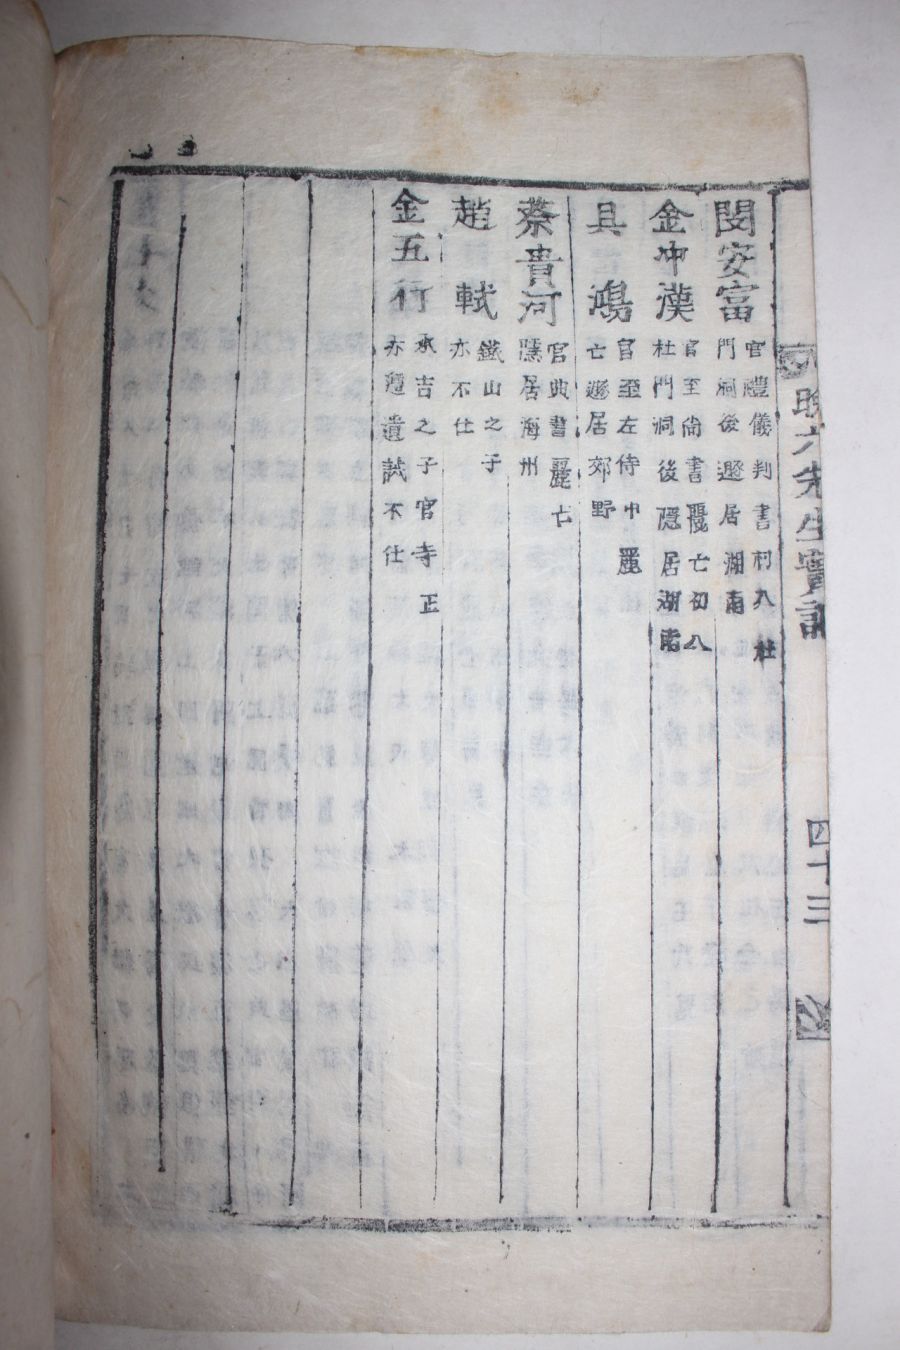 晚六先生實記
四十三
閔安富 官禮儀判書初入杜
門洞後遯居湖南
金冲漢 官至尙書麗亡初入
杜門洞後隱居湖南
具鴻 官至左侍中麗
亡遯居郊野
蔡貴河 官典書麗亡
隱居海州
趙軾 鐵山之子
亦不仕
金五行 承吉之子官寺正
亦遯遺試不仕